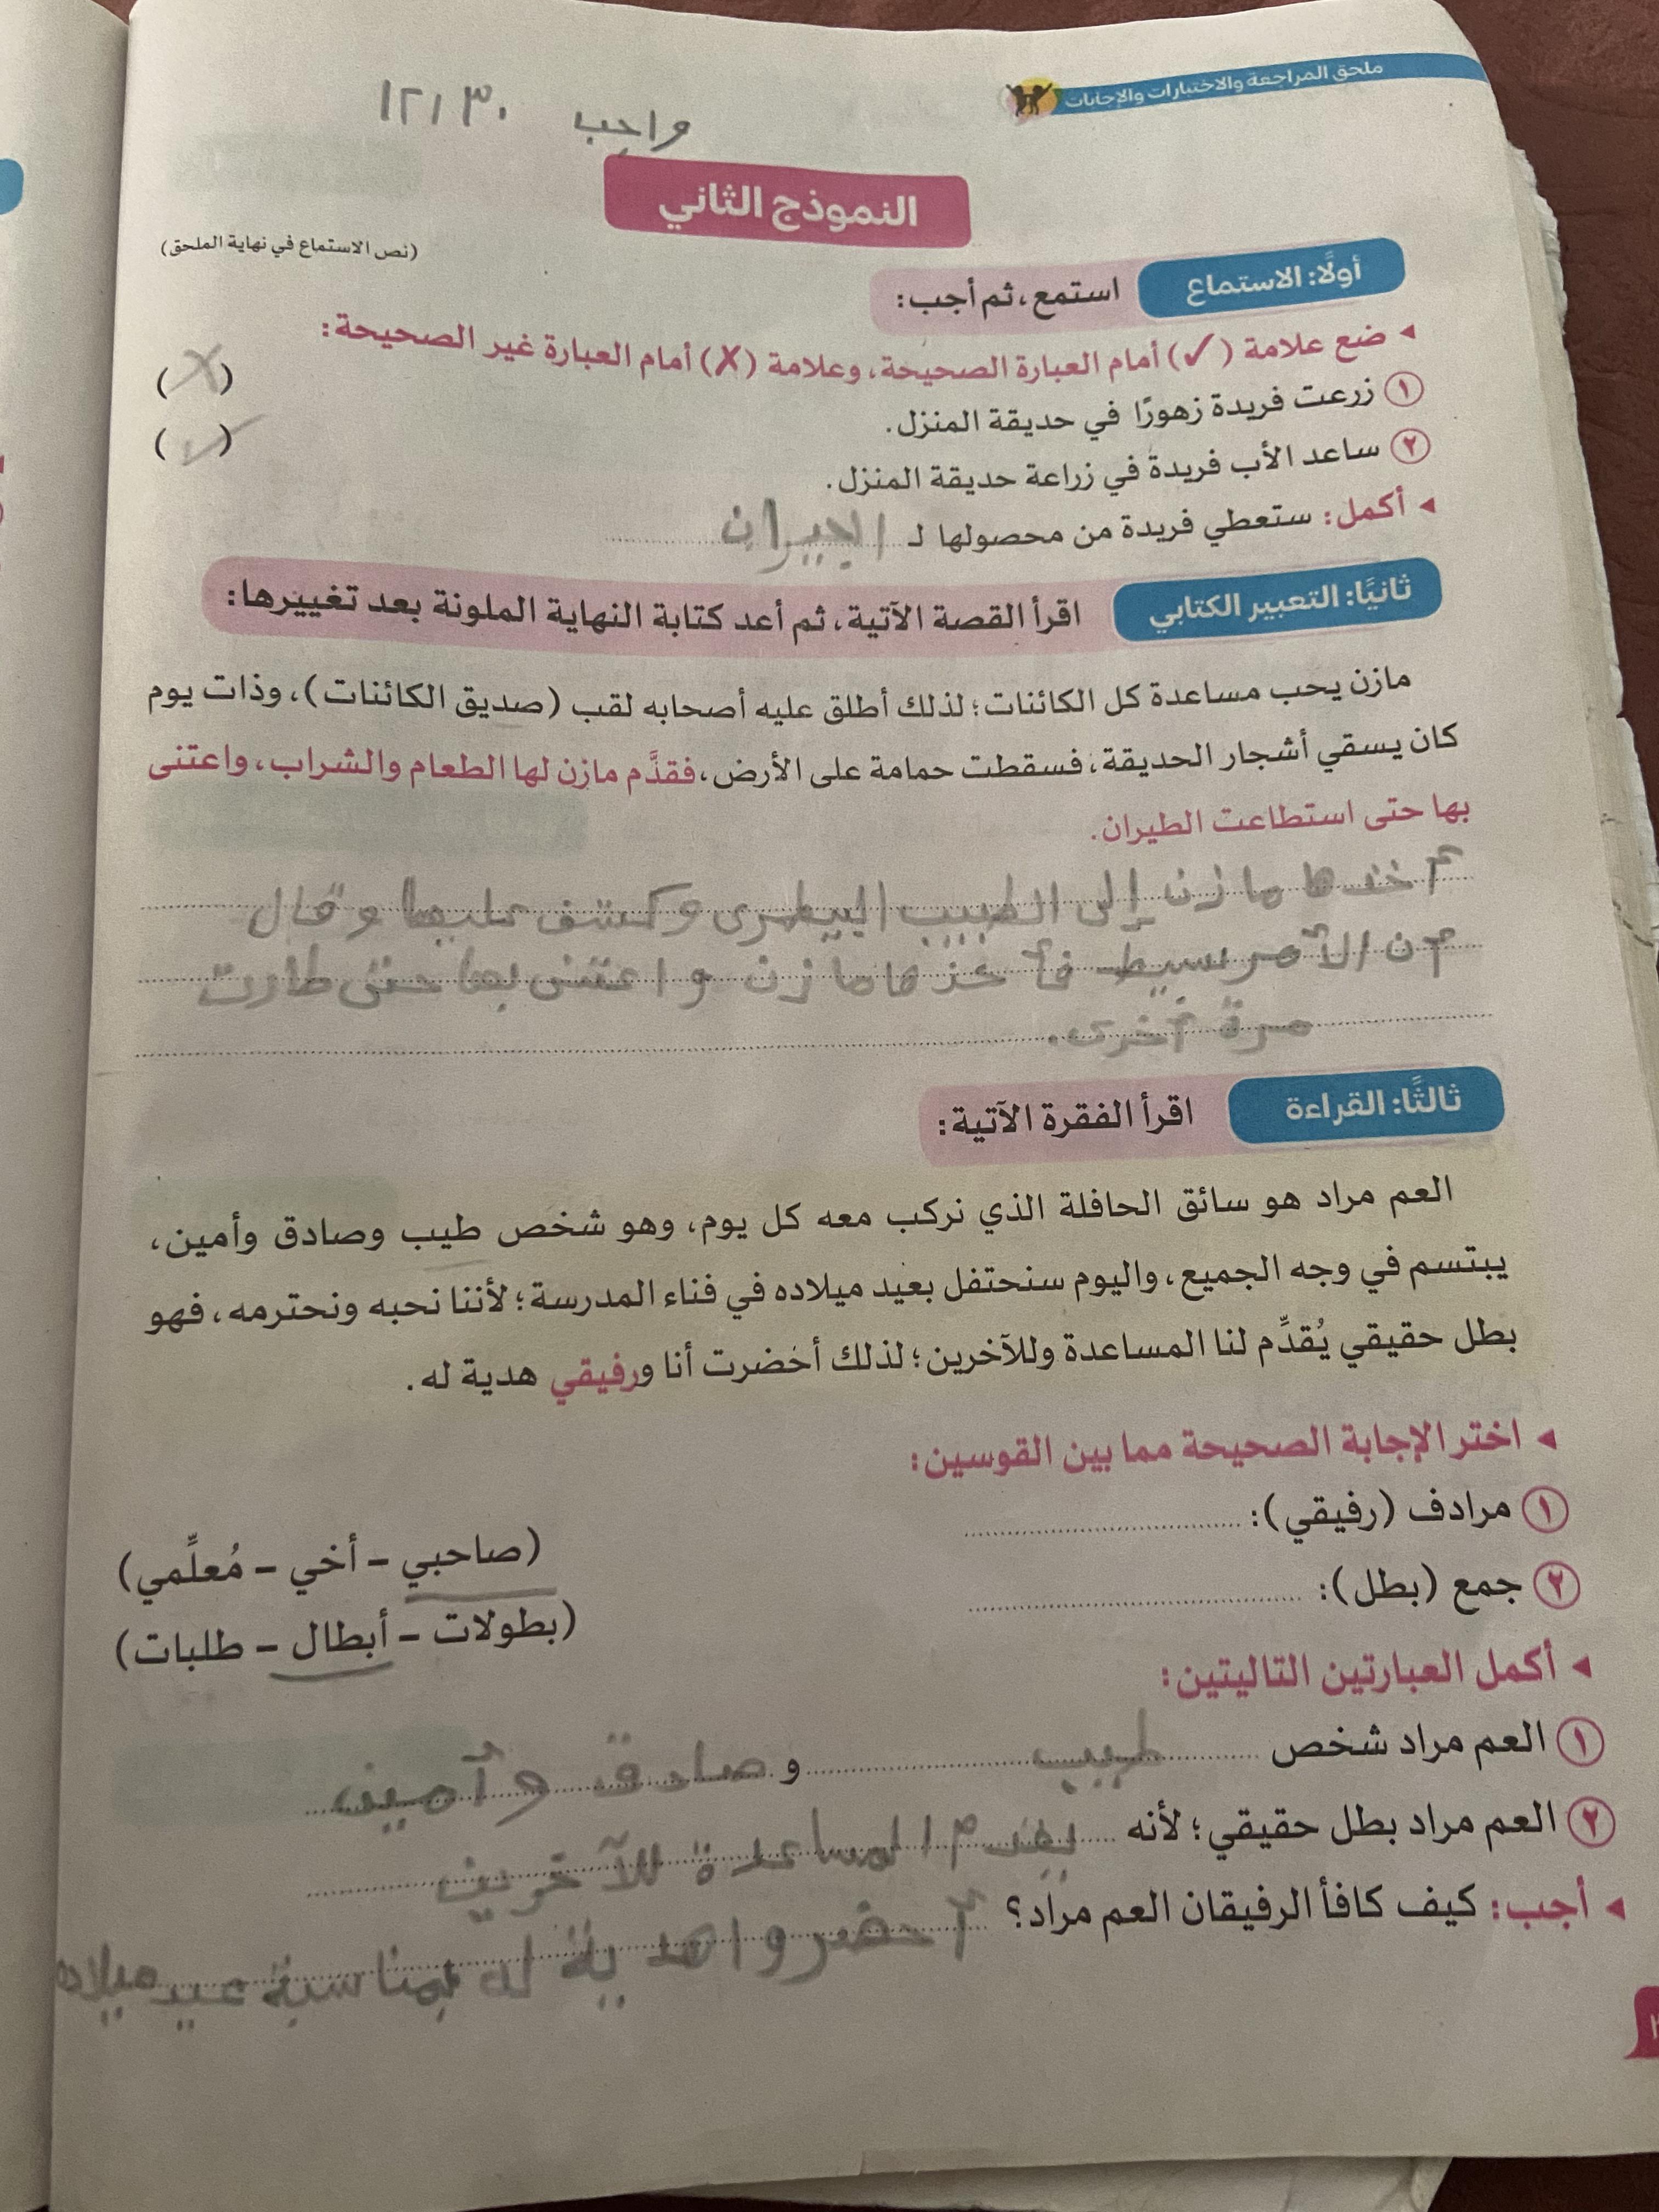 ملحق المراجعة والاختبارات والإجابات
واجب ١٢/٣٠
النموذج الثاني
(نص الاستماع في نهاية الملحق)
أولًا: الاستماع استمع، ثم أجب:
◂ ضع علامة (✓) أمام العبارة الصحيحة، وعلامة (✗) أمام العبارة غير الصحيحة:
١ زرعت فريدة زهورًا في حديقة المنزل. (✗)
٢ ساعد الأب فريدة في زراعة حديقة المنزل. (✓)
◂ أكمل: ستعطي فريدة من محصولها لـ الجيران
ثانيًا: التعبير الكتابي اقرأ القصة الآتية، ثم أعد كتابة النهاية الملونة بعد تغييرها:
مازن يحب مساعدة كل الكائنات؛ لذلك أطلق عليه أصحابه لقب (صديق الكائنات)، وذات يوم
كان يسقي أشجار الحديقة، فسقطت حمامة على الأرض، فقدَّم مازن لها الطعام والشراب، واعتنى
بها حتى استطاعت الطيران.
أخدها مازن إلى الطبيب البيطرى وكشف عليها وقال
أن الأمر بسيط فأخذها مازن واعتنى بها حتى طارت
مرة أخرى.
ثالثًا: القراءة اقرأ الفقرة الآتية:
العم مراد هو سائق الحافلة الذي نركب معه كل يوم، وهو شخص طيب وصادق وأمين،
يبتسم في وجه الجميع، واليوم سنحتفل بعيد ميلاده في فناء المدرسة؛ لأننا نحبه ونحترمه، فهو
بطل حقيقي يُقدِّم لنا المساعدة وللآخرين؛ لذلك أحضرت أنا ورفيقي هدية له.
◂ اختر الإجابة الصحيحة مما بين القوسين:
١ مرادف (رفيقي): (صاحبي – أخي – مُعلِّمي)
٢ جمع (بطل): (بطولات – أبطال – طلبات)
◂ أكمل العبارتين التاليتين:
١ العم مراد شخص طيب و صادق وأمين
٢ العم مراد بطل حقيقي؛ لأنه يقدم المساعدة للآخرين
◂ أجب: كيف كافأ الرفيقان العم مراد؟ أحضروا هدية له بمناسبة عيد ميلاده